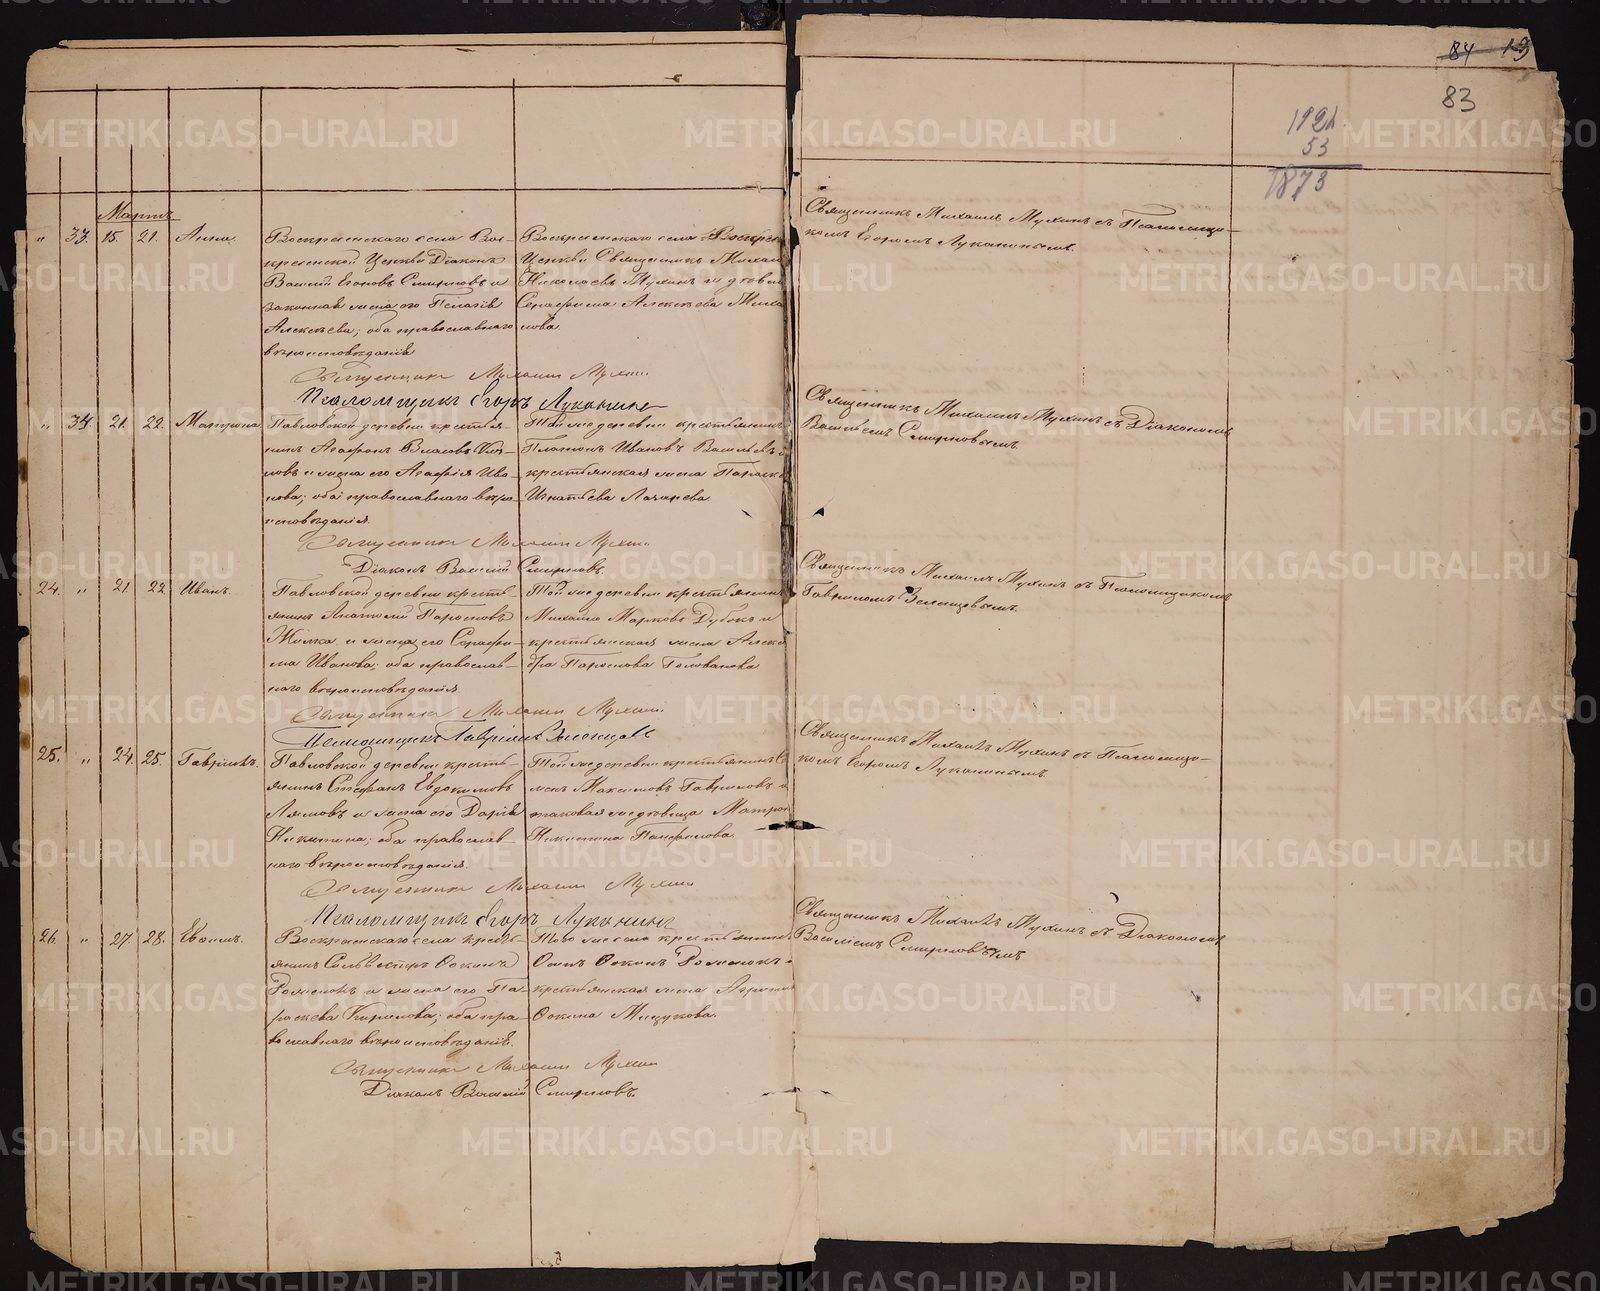 84 19
83
1921
53
1873
Мартъ
" 33. 15. 21. Анна.
Воскресенскаго села Вос-
кресенской Церкви Діаконъ
Василій Смирновъ и
законная жена его Пелагія
Алексѣева; оба православнаго
вѣроисповѣданія
Воскресенскаго села Воскресен
Церкви Священникъ Михаи
Николаевъ Мухинъ и вдова
Серафима Алексѣева
Священникъ Михаилъ Мухинъ съ Псаломщи-
комъ Егоромъ Луканинымъ.
Священникъ Михаилъ Мухин
Псаломщикъ Егоръ Луканинъ
" 34. 21. 22. Матрона
Павловской деревни крестья-
нинъ Агафонъ Власовъ
и жена его Агафія Ива-
нова; оба православнаго вѣро-
исповѣданія.
Той же деревни крестьянинъ
Платонъ Ивановъ Васильевъ
крестьянская жена Параск
Игнатьева
Священникъ Михаилъ Мухинъ съ Діакономъ
Васильемъ Смирновымъ.
Священникъ Михаилъ Мухин
Діаконъ Василій Смирновъ.
24. " 21. 22. Иванъ.
Павловской деревни кресть-
янинъ Анатолій
и жена его Серафи-
ма Иванова; оба православ-
наго вѣроисповѣданія
Той же деревни крестьянинъ
Михаилъ Марковъ Дубокъ и
крестьянская жена Алекса
Голованова
Священникъ Михаилъ Мухинъ съ Псаломщикомъ
Гавриломъ Зеленцовымъ.
Священникъ Михаилъ Мухин
Псаломщикъ Гавріилъ Зеленцовъ
25. " 24. 25. Гавріилъ.
Павловской деревни кресть-
янинъ Стефанъ Евдокимовъ
и жена его Дарья
Никитина; оба православ-
наго вѣроисповѣданія.
Той же деревни крестьянинъ
Максимовъ Гавриловъ и
таковая же дѣвица Матрон
Никитина Панфилова.
Священникъ Михаилъ Мухинъ съ Псаломщи-
комъ Егоромъ Луканинымъ
Священникъ Михаилъ Мухин
Псаломщикъ Егоръ Луканинъ
26. " 27. 28. Евфимъ.
Воскресенскаго села кресть-
янинъ Сильвестръ Фокинъ
Романюкъ и жена его Па-
раскева Кирилова; оба пра-
вославнаго вѣроисповѣданія.
Того же села крестьянинъ
Осипъ Фокинъ Романюкъ
крестьянская жена
Фокина Мищукова.
Священникъ Михаилъ Мухинъ съ Діакономъ
Василіемъ Смирновымъ
Священникъ Михаилъ Мухин
Діаконъ Василій Смирновъ.
METRIKI.GASO-URAL.RU